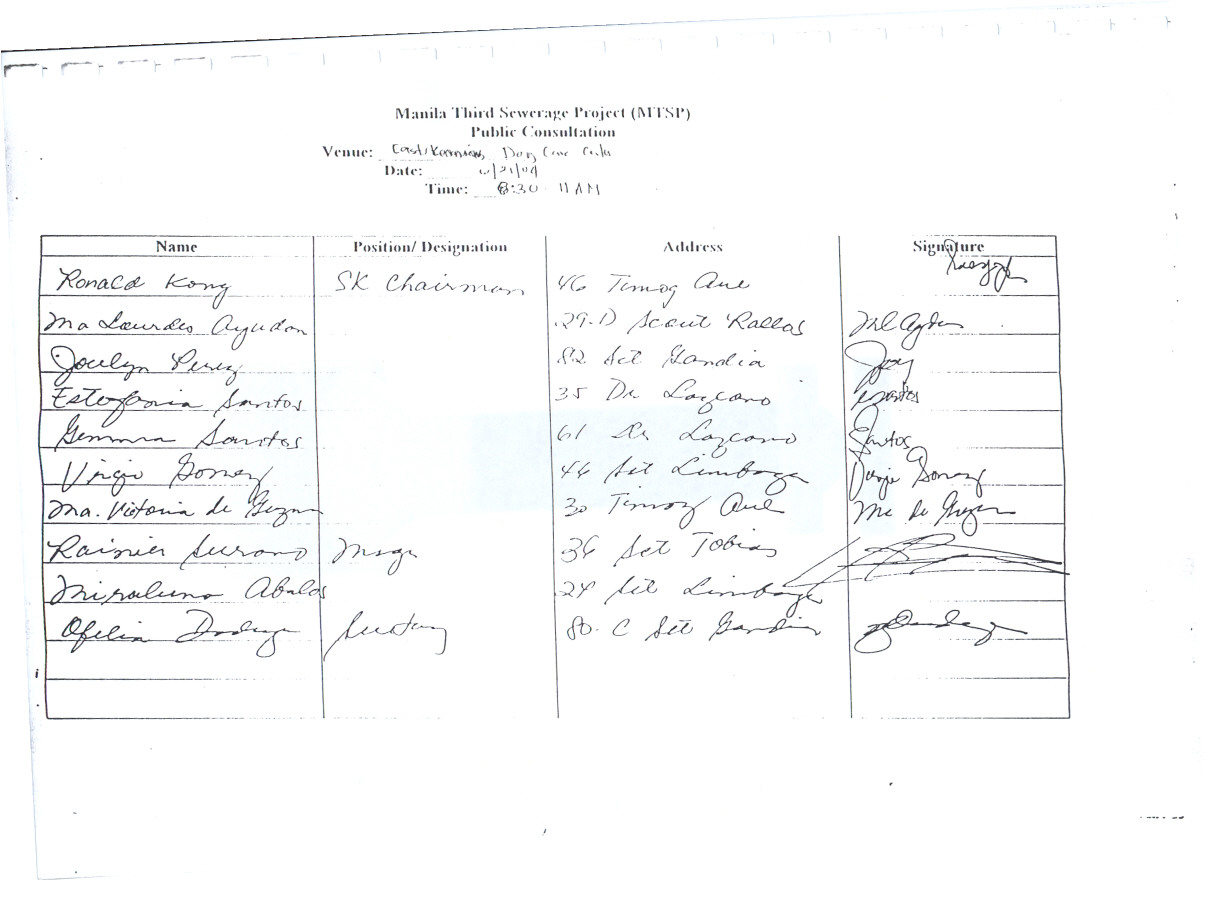 Manila Third Sewerage Project (MTSP)
Public Consultation
Venue: Day Care
Date:
Time: 8:30 - 11 AM
Name Position/ Designation Address Signature
Ronald Kong SK Chairman 46 Timog Ave
Ma Lourdes Ayudan 29-D Scout Rallos
Jocelyn Perez 82 Sct Gandia
Estefania Santos 35 Dr Lazcano Santos
Gemma Santos 61 Dr Lazcano Santos
Virgio Gomez 46 Sct Limbaga Gomez
Ma. Victoria de Guzman 30 Timog Ave de Guzman
Rainier 36 Sct Tobias
Abalos 24 Sct Limbaga
Ofelia 80-C Sct Gandia